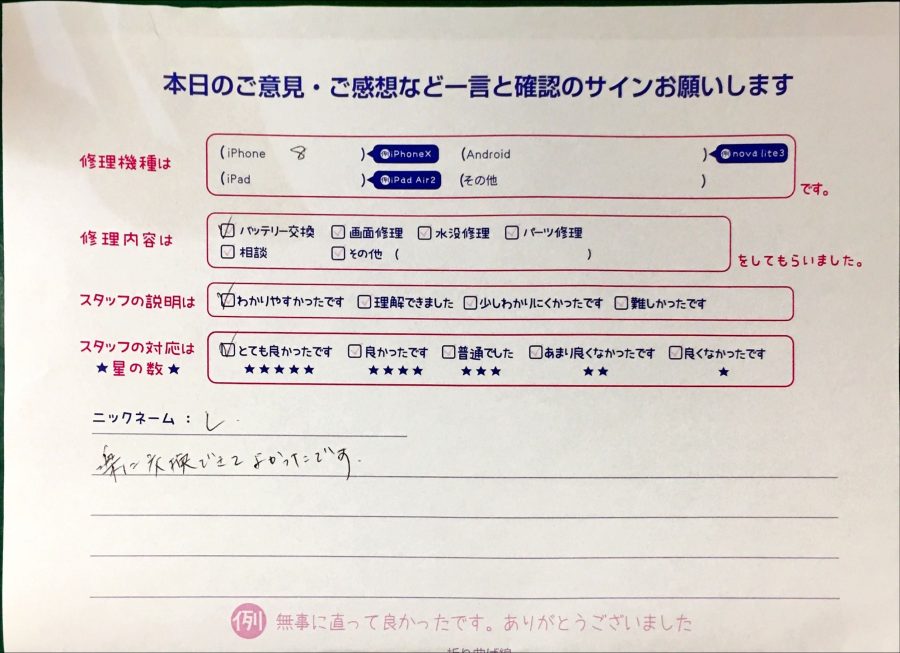 本日のご意見・ご感想など一言と確認のサインお願いします
修理機種は
(iPhone 8 ) 例iPhoneX (Android ) 例nova lite3
(iPad ) 例iPad Air2 (その他 ) です。
修理内容は
バッテリー交換 画面修理 水没修理 パーツ修理
相談 その他 ( ) をしてもらいました。
スタッフの説明は わかりやすかったです 理解できました 少しわかりにくかったです 難しかったです
スタッフの対応は とても良かったです 良かったです 普通でした あまり良くなかったです 良くなかったです
★星の数★ ★★★★★ ★★★★ ★★★ ★★ ★
ニックネーム : し
楽に交換できてよかったです.
例 無事に直って良かったです。ありがとうございました